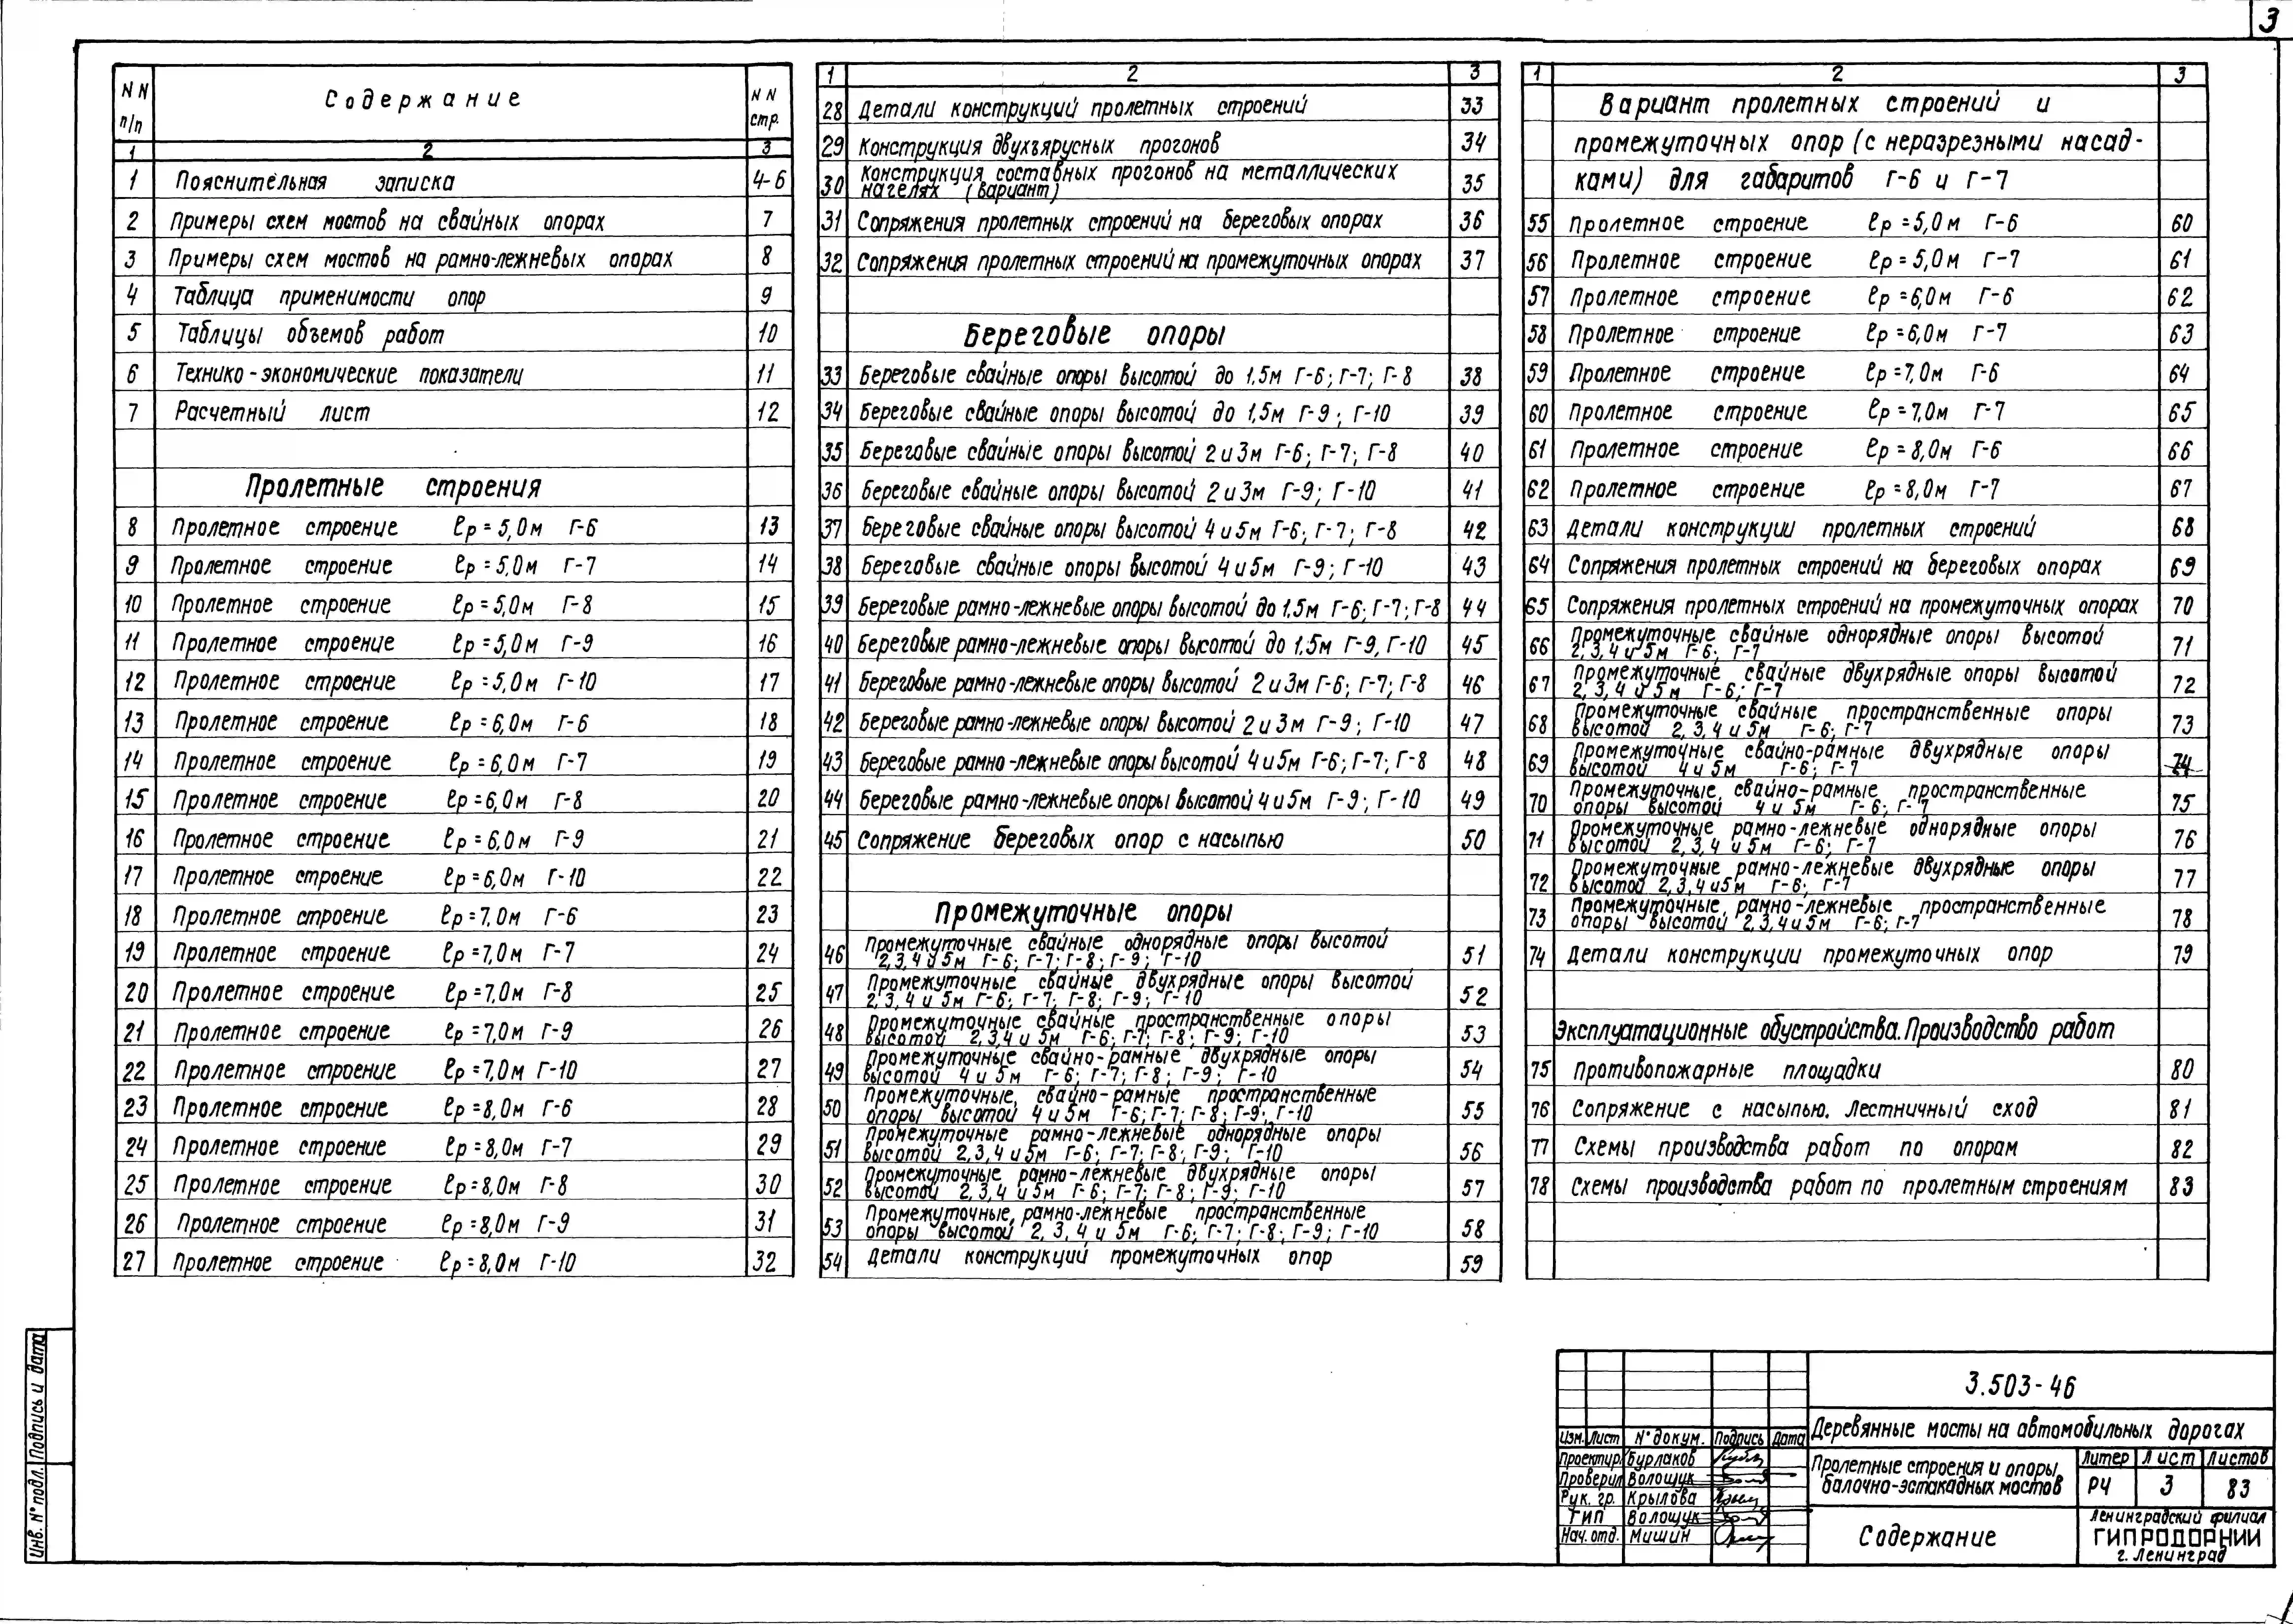 3
N N п/п Содержание N N стр.
1 2 3
1 Пояснительная записка 4-6
2 Примеры схем мостов на свайных опорах 7
3 Примеры схем мостов на рамно-лежневых опорах 8
4 Таблица применимости опор 9
5 Таблицы объемов работ 10
6 Технико-экономические показатели 11
7 Расчетный лист 12
Пролетные строения
8 Пролетное строение ℓр=5,0м Г-6 13
9 Пролетное строение ℓр=5,0м Г-7 14
10 Пролетное строение ℓр=5,0м Г-8 15
11 Пролетное строение ℓр=5,0м Г-9 16
12 Пролетное строение ℓр=5,0м Г-10 17
13 Пролетное строение ℓр=6,0м Г-6 18
14 Пролетное строение ℓр=6,0м Г-7 19
15 Пролетное строение ℓр=6,0м Г-8 20
16 Пролетное строение ℓр=6,0м Г-9 21
17 Пролетное строение ℓр=6,0м Г-10 22
18 Пролетное строение ℓр=7,0м Г-6 23
19 Пролетное строение ℓр=7,0м Г-7 24
20 Пролетное строение ℓр=7,0м Г-8 25
21 Пролетное строение ℓр=7,0м Г-9 26
22 Пролетное строение ℓр=7,0м Г-10 27
23 Пролетное строение ℓр=8,0м Г-6 28
24 Пролетное строение ℓр=8,0м Г-7 29
25 Пролетное строение ℓр=8,0м Г-8 30
26 Пролетное строение ℓр=8,0м Г-9 31
27 Пролетное строение ℓр=8,0м Г-10 32
1 2 3
28 Детали конструкций пролетных строений 33
29 Конструкция двухъярусных прогонов 34
30 Конструкция составных прогонов на металлических
нагелях (вариант) 35
31 Сопряжения пролетных строений на береговых опорах 36
32 Сопряжения пролетных строений на промежуточных опорах 37
Береговые опоры
33 Береговые свайные опоры высотой до 1,5м Г-6; Г-7; Г-8 38
34 Береговые свайные опоры высотой до 1,5м Г-9; Г-10 39
35 Береговые свайные опоры высотой 2 и 3м Г-6; Г-7; Г-8 40
36 Береговые свайные опоры высотой 2 и 3м Г-9; Г-10 41
37 Береговые свайные опоры высотой 4 и 5м Г-6; Г-7; Г-8 42
38 Береговые свайные опоры высотой 4 и 5м Г-9; Г-10 43
39 Береговые рамно-лежневые опоры высотой до 1.5м Г-6; Г-7; Г-8 44
40 Береговые рамно-лежневые опоры высотой до 1.5м Г-9, Г-10 45
41 Береговые рамно-лежневые опоры высотой 2 и 3м Г-6; Г-7; Г-8 46
42 Береговые рамно-лежневые опоры высотой 2 и 3м Г-9; Г-10 47
43 Береговые рамно-лежневые опоры высотой 4 и 5м Г-6; Г-7; Г-8 48
44 Береговые рамно-лежневые опоры высотой 4 и 5м Г-9; Г-10 49
45 Сопряжение береговых опор с насыпью 50
Промежуточные опоры
46 Промежуточные свайные однорядные опоры высотой
2,3,4 и 5м Г-6; Г-7; Г-8; Г-9; Г-10 51
47 Промежуточные свайные двухрядные опоры высотой
2,3,4 и 5м Г-6; Г-7; Г-8; Г-9; Г-10 52
48 Промежуточные свайные пространственные опоры
высотой 2,3,4 и 5м Г-6; Г-7; Г-8; Г-9; Г-10 53
49 Промежуточные свайно-рамные двухрядные опоры
высотой 4 и 5м Г-6; Г-7; Г-8; Г-9; Г-10 54
50 Промежуточные свайно-рамные пространственные
опоры высотой 4 и 5м Г-6; Г-7; Г-8; Г-9; Г-10 55
51 Промежуточные рамно-лежневые однорядные опоры
высотой 2,3,4 и 5м Г-6; Г-7; Г-8; Г-9; Г-10 56
52 Промежуточные рамно-лежневые двухрядные опоры
высотой 2,3,4 и 5м Г-6; Г-7; Г-8; Г-9; Г-10 57
53 Промежуточные рамно-лежневые пространственные
опоры высотой 2, 3, 4 и 5м Г-6; Г-7; Г-8; Г-9; Г-10 58
54 Детали конструкций промежуточных опор 59
1 2 3
Вариант пролетных строений и
промежуточных опор (с неразрезными насад-
ками) для габаритов Г-6 и Г-7
55 Пролетное строение ℓр=5,0м Г-6 60
56 Пролетное строение ℓр=5,0м Г-7 61
57 Пролетное строение ℓр=6,0м Г-6 62
58 Пролетное строение ℓр=6,0м Г-7 63
59 Пролетное строение ℓр=7,0м Г-6 64
60 Пролетное строение ℓр=7,0м Г-7 65
61 Пролетное строение ℓр=8,0м Г-6 66
62 Пролетное строение ℓр=8,0м Г-7 67
63 Детали конструкции пролетных строений 68
64 Сопряжения пролетных строений на береговых опорах 69
65 Сопряжения пролетных строений на промежуточных опорах 70
66 Промежуточные свайные однорядные опоры высотой
2,3,4 и 5м Г-6; Г-7 71
67 Промежуточные свайные двухрядные опоры высотой
2,3,4 и 5м Г-6; Г-7 72
68 Промежуточные свайные пространственные опоры
высотой 2,3,4 и 5м Г-6; Г-7 73
69 Промежуточные свайно-рамные двухрядные опоры
высотой 4 и 5м Г-6; Г-7 74
70 Промежуточные свайно-рамные пространственные
опоры высотой 4 и 5м Г-6; Г-7 75
71 Промежуточные рамно-лежневые однорядные опоры
высотой 2,3,4 и 5м Г-6; Г-7 76
72 Промежуточные рамно-лежневые двухрядные опоры
высотой 2,3,4 и 5м Г-6; Г-7 77
73 Промежуточные рамно-лежневые пространственные
опоры высотой 2,3,4 и 5м Г-6; Г-7 78
74 Детали конструкции промежуточных опор 79
Эксплуатационные обустройства. Производство работ
75 Противопожарные площадки 80
76 Сопряжение с насыпью. Лестничный сход 81
77 Схемы производства работ по опорам 82
78 Схемы производства работ по пролетным строениям 83
Инв. N° подл. Подпись и дата
3.503-46
Деревянные мосты на автомобильных дорогах
Изм. Лист N° докум. Подпись Дата
Проектир. Бурлаков
Проверил Волощук
Рук. гр. Крылова
ГИП Волощук
Нач. отд. Мишин
Пролетные строения и опоры
балочно-эстакадных мостов
Литер Лист Листов
РЧ 3 83
Содержание
Ленинградский филиал
ГИПРОДОРНИИ
г. Ленинград